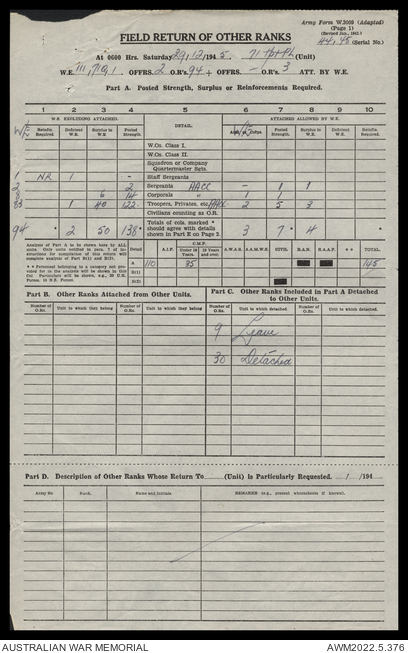 Army Form W.3009 (Adapted)
(Page 1)
(Revised Jan., 1942.)
44/45 (Serial No.)
FIELD RETURN OF OTHER RANKS
At 0600 Hrs. Saturday 29/12/1945. (Unit)
W.E. OFFRS. 2 O.R's. 94 + OFFRS. - O.R's. 3 ATT. BY W.E.
Part A. Posted Strength, Surplus or Reinforcements Required.
1 2 3 4 5 6 7 8 9 10
W.E. EXCLUDING ATTACHED. DETAIL. ATTACHED ALLOWED BY W.E.
Reinfts. Required. Deficient W.E. Surplus to W.E. Posted Strength. Deficient W.E. Surplus to W.E. Posted Strength. Reinfts. Required.
W.Os. Class I.
W.Os. Class II.
Squadron or Company Quartermaster Sgts.
1 NR 1 - Staff Sergeants
2 2 Sergeants AACC - 1 1
8 6 14 Corporals 1 1 -
83 1 40 122 Troopers, Privates, etc. AACC 2 5 3
Civilians counting as O.R.
94 * 2 50 138 * Totals of cols. marked * should agree with details shown in Part E on Page 3. 3 7 * 4 *
Analysis of Part A to be shown here by ALL units. Detail A.I.F. C.M.F. Under 19 Years. 19 Years and over. A.W.A.S. A.A.M.W.S. CIVIL. R.A.N. R.A.A.F. ** TOTAL.
A 110 35 145
B(i)
B(ii)
Part B. Other Ranks Attached from Other Units.
Part C. Other Ranks Included in Part A Detached to Other Units.
Number of O.Rs. Unit to which they belong Number of O.Rs. Unit to which they belong Number of O.Rs. Unit to which detached. Number of O.Rs. Unit to which detached.
9 Leave
30 Detached
Part D. Description of Other Ranks Whose Return To (Unit) is Particularly Requested. / /194
Army No Rank. Name and Initials REMARKS (e.g., present whereabouts if known).
AUSTRALIAN WAR MEMORIAL AWM2022.5.376